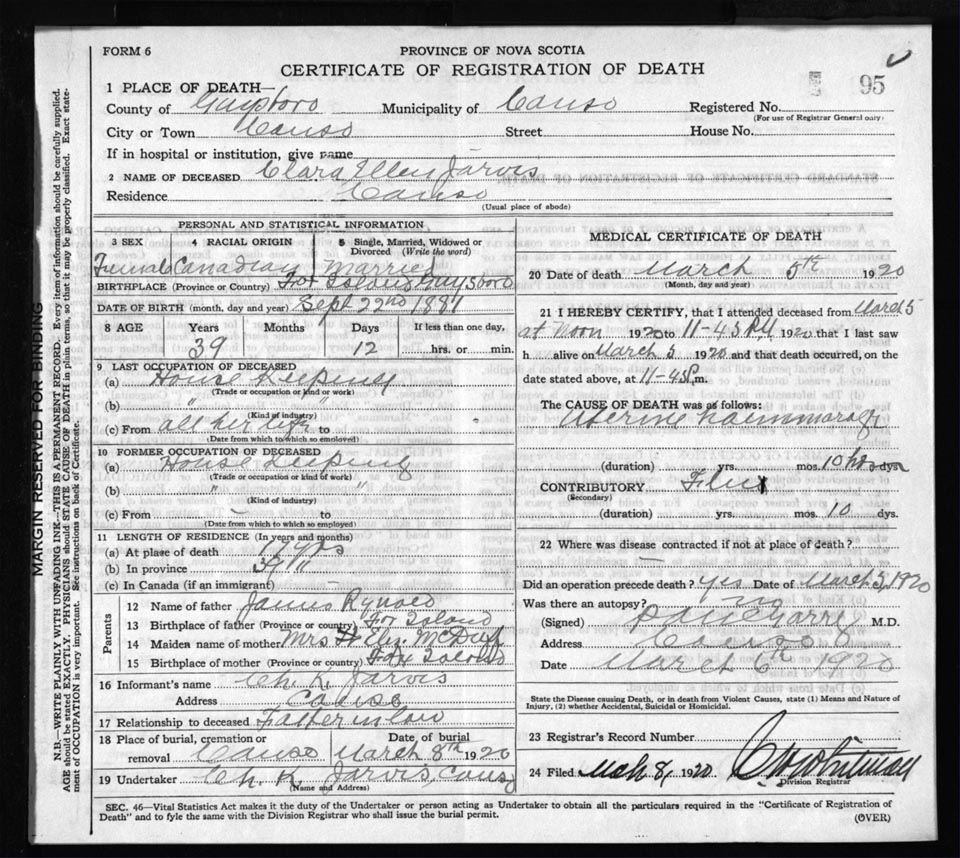 FORM 6
PROVINCE OF NOVA SCOTIA
CERTIFICATE OF REGISTRATION OF DEATH
95
1 PLACE OF DEATH—
County of Guysboro Municipality of Canso Registered No.
(For use of Registrar General only)
City or Town Canso Street House No.
If in hospital or institution, give name
2 NAME OF DECEASED Clara Ellen Jarvis
Residence Canso
(Usual place of abode)
PERSONAL AND STATISTICAL INFORMATION
3 SEX 4 RACIAL ORIGIN 5 Single, Married, Widowed or Divorced (Write the word)
Female Canadian Married
BIRTHPLACE (Province or Country) Fox Island Guysboro
DATE OF BIRTH (month, day and year) Sept 22nd 1881
8 AGE Years Months Days If less than one day,
39 12 hrs. or min.
9 LAST OCCUPATION OF DECEASED
(a) House Keeping
(Trade or occupation or kind of work)
(b) "
(Kind of industry)
(c) From all her life to
(Date from which to which so employed)
10 FORMER OCCUPATION OF DECEASED
(a) House Keeping
(Trade or occupation or kind of work)
(b) " "
(Kind of industry)
(c) From – to
(Date from which to which so employed)
11 LENGTH OF RESIDENCE (In years and months)
(a) At place of death yrs
(b) In province 39 "
(c) In Canada (if an immigrant) –
Parents
12 Name of father James
13 Birthplace of father (Province or country) Fox Island
14 Maiden name of mother Mrs
15 Birthplace of mother (Province or country) Fox Island
16 Informant's name Ch. K. Jarvis
Address Canso
17 Relationship to deceased Father in law
18 Place of burial, cremation or removal Date of burial
Canso March 8th 1920
19 Undertaker Ch. K. Jarvis, Canso
(Name and Address)
MEDICAL CERTIFICATE OF DEATH
20 Date of death March 5th 1920
(Month, day and year)
21 I HEREBY CERTIFY, that I attended deceased from March 5
at Noon 1920 to 11-45 PM 1920 that I last saw
h alive on March 5 1920 and that death occurred, on the
date stated above, at 11-45 P.m.
The CAUSE OF DEATH was as follows:
Uterine haemmorage
(duration) yrs. mos. 10 hrs dys.
CONTRIBUTORY Flu
(Secondary)
(duration) yrs. mos. 10 dys.
22 Where was disease contracted if not at place of death?
–
Did an operation precede death? yes Date of March 5, 1920
Was there an autopsy? no
(Signed) M.D.
Address Canso
Date March 6th 1920
State the Disease causing Death, or in death from Violent Causes, state (1) Means and Nature of
Injury, (2) whether Accidental, Suicidal or Homicidal.
23 Registrar's Record Number
24 Filed Mch 8, 1920 Whitman
Division Registrar
SEC. 46—Vital Statistics Act makes it the duty of the Undertaker or person acting as Undertaker to obtain all the particulars required in the "Certificate of Registration of
Death" and to fyle the same with the Division Registrar who shall issue the burial permit.
(OVER)
MARGIN RESERVED FOR BINDING
N.B.—WRITE PLAINLY WITH UNFADING INK—THIS IS A PERMANENT RECORD. Every item of information should be carefully supplied.
AGE should be stated EXACTLY. PHYSICIANS should STATE CAUSE OF DEATH in plain terms, so that it may be properly classified. Exact statement
of OCCUPATION is very important. See instructions on back of Certificate.